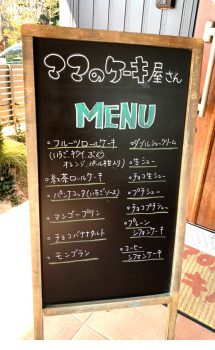 ママのケーキ屋さん
MENU
。フルーツロールケーキ
(いちご、キウイ、ぶどう
オレンジ、パール柑入り)
。紅茶ロールケーキ
。パンナコッタ(いちごソース)
。マンゴープリン
。チョコバナナタルト
。モンブラン
。ダブルシュークリーム
。生シュー
。チョコ生シュー
。プチシュー
。チョコプチシュー
。プレーン
シフォンケーキ
。コーヒー
シフォンケーキ